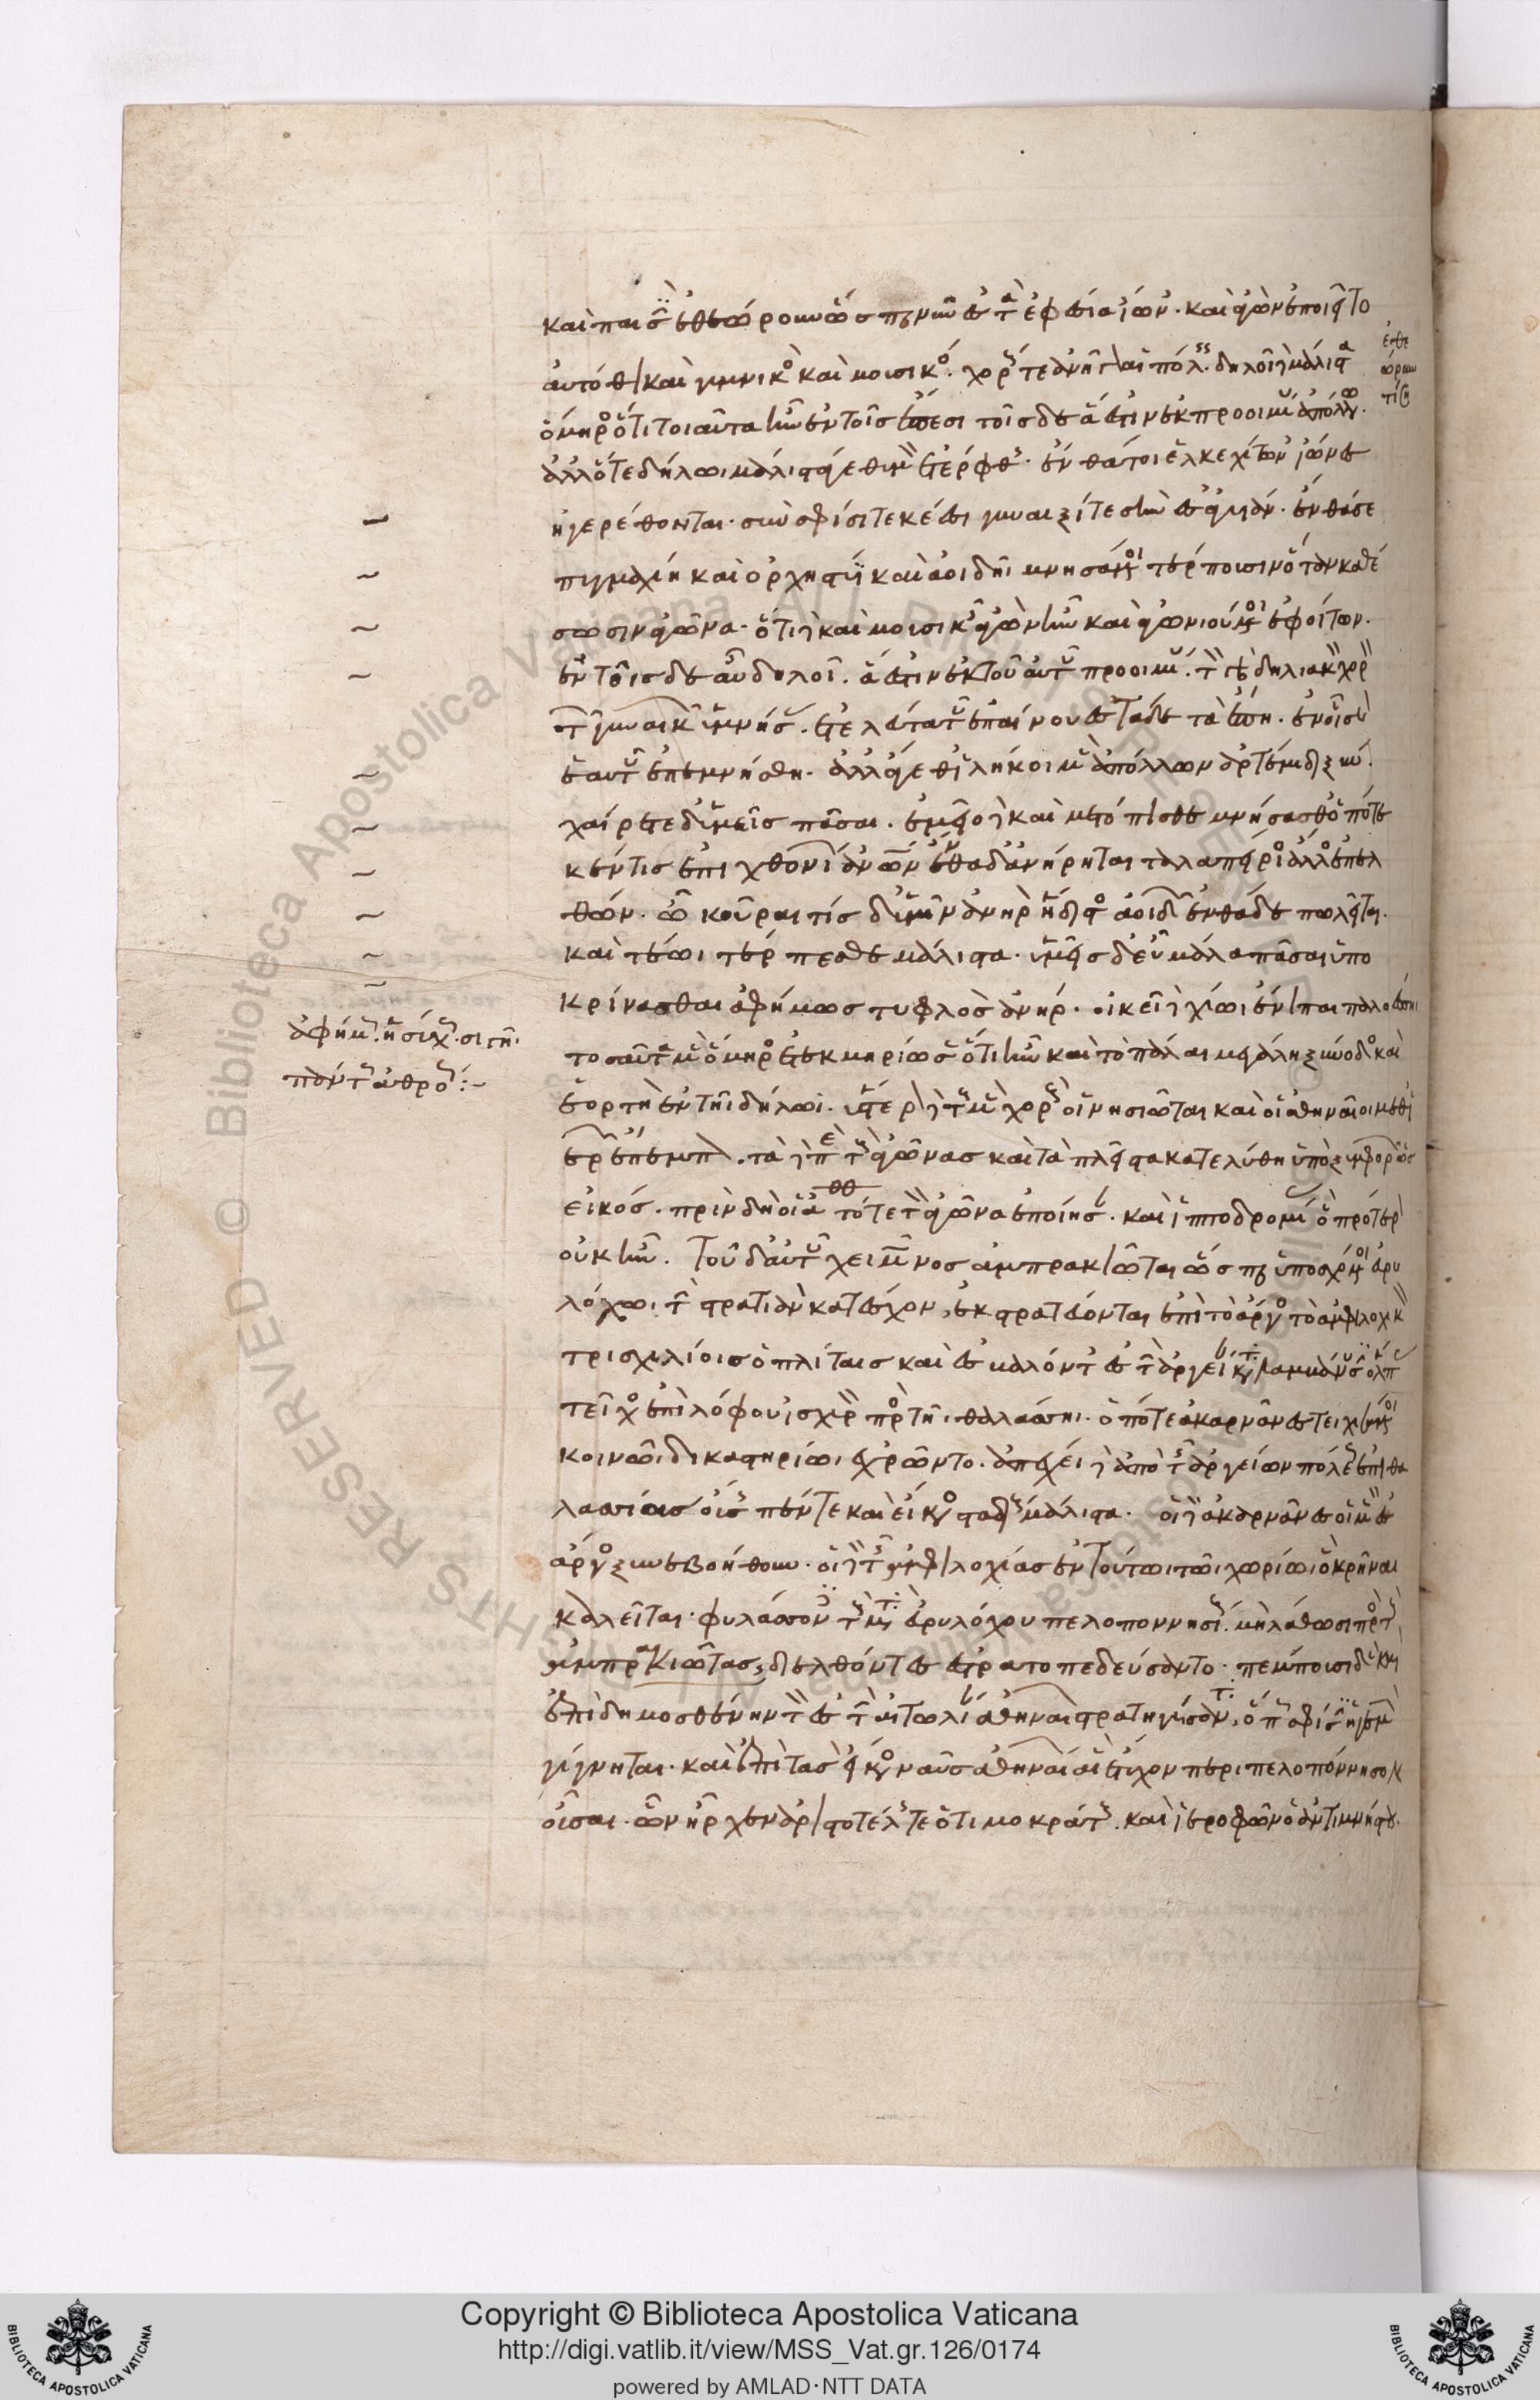 καὶ παισὶν ἐθεώρουν ὥσπερ νῦν ἐς τὰ ἐφέσια ἴωνες. καὶ ἀγὼν ἐποιεῖτο
αὐτόθι καὶ γυμνικὸς καὶ μουσικός. χορούς τε ἀνῆγον αἱ πόλεις. δηλοῖ δὲ μάλιστα
ὅμηρος ὅτι τοιαῦτα ἦν ἐν τοῖς ἔπεσι τοῖσδε ἅ ἐστιν ἐκ προοιμίου ἀπόλλωνος.
ἀλλ' ὅτε δήλωι μάλιστά γε θυμὸν ἐτέρφθης. ἔνθά τοι ἑλκεχίτωνες ἰάονες
ἠγερέθονται. σὺν σφίσι τεκέεσσι γυναιξί τε σὴν ἐς ἀγυιάν. ἔνθα σε
πυγμαχίη καὶ ὀρχηστυῖ καὶ ἀοιδῆι μνησάμενοι τέρπουσιν ὅταν καθέ
σωσιν ἀγῶνα. ὅτι δὲ καὶ μουσικῆς ἀγὼν ἦν καὶ ἀγωνιούμενοι ἐφοίτων.
ἐν τοῖσδε αὖ δηλοῖ. ἅ ἐστιν ἐκ τοῦ αὐτοῦ προοιμίου. τὸν γὰρ δηλιακὸν χορὸν
τῶν γυναικῶν ὑμνήσας. ἐτελεύτα τοῦ ἐπαίνου ἐς τάδε τὰ ἔπη. ἐν οἷς καὶ
ἑαυτοῦ ἐπεμνήσθη. ἀλλ' ἄγεθ' ἱλήκοι μὲν ἀπόλλων ἀρτέμιδι ξύν.
χαίρετε δ' ὑμεῖς πᾶσαι. ἐμεῖο δὲ καὶ μετόπισθε μνήσασθ' ὁππότε
κέν τις ἐπιχθονίων ἀνθρώπων ἐνθάδ' ἀνείρηται ταλαπείριος ἄλλος ἐπελ
θών. ὦ κοῦραι τίς δ' ὕμμιν ἀνὴρ ἥδιστος ἀοιδῶν ἐνθάδε πωλεῖται.
καὶ τέωι τέρπεσθε μάλιστα. ὑμεῖς δ' εὖ μάλα πᾶσαι ὑπο
κρίνασθαι ἀφήμως τυφλὸς ἀνήρ. οἰκεῖ δὲ χίωι ἐνὶ παιπαλοέσσηι
τοσαῦτα μὲν ὅμηρος ἐτεκμηρίωσεν ὅτι ἦν καὶ τὸ πάλαι μεγάλη ξύνοδος καὶ
ἑορτὴ ἐν τῆι δήλωι. ὕστερον δὲ τοὺς μὲν χοροὺς οἱ νησιῶται καὶ οἱ ἀθηναῖοι μεθ'
ἱερῶν ἔπεμπον. τὰ δὲ περὶ τοὺς ἀγῶνας καὶ τὰ πλεῖστα κατελύθη ὑπὸ ξυμφορῶν ὡς
εἰκός. πρὶν δὴ οἱ ἀθηναῖοι τότε τὸν ἀγῶνα ἐποίησαν. καὶ ἱπποδρομίας ὃ πρότερον
οὐκ ἦν. Τοῦ δ' αὐτοῦ χειμῶνος ἀμπρακιῶται ὥσπερ ὑποσχόμενοι εὐρυ
λόχωι τὴν στρατιὰν κατέσχον, ἐκστρατεύονται ἐπὶ τὸ ἄργος τὸ ἀμφιλοχικὸν
τρισχιλίοις ὁπλίταις καὶ ἐσβαλόντες ἐς τὴν ἀργείαν καταλαμβάνουσιν ὄλπας
τεῖχος ἐπὶ λόφου ἰσχυρὸν πρὸς τῆι θαλάσσηι. ὅ ποτε ἀκαρνᾶνες τειχισάμενοι
κοινῶι δικαστηρίωι ἐχρῶντο. ἀπέχει δὲ ἀπὸ τῆς ἀργείων πόλεως ἐπιθα
λασσίας οὔσης πέντε καὶ εἴκοσι σταδίους μάλιστα. οἱ δὲ ἀκαρνᾶνες οἱ μὲν ἐς
ἄργος ξυνεβοήθουν. οἱ δὲ τῆς ἀμφιλοχίας ἐν τούτωι τῶι χωρίωι ὃ κρῆναι
καλεῖται. φυλάσσοντες τοὺς μετὰ εὐρυλόχου πελοποννησίους. μὴ λάθωσι πρὸς τοὺς
ἀμπρακιώτας, διελθόντες ἐστρατοπεδεύσαντο. πέμπουσι δὲ καὶ
ἐπὶ δημοσθένην τὸν ἐς τὴν αἰτωλίαν ἀθηναίων στρατηγήσαντα, ὅπως σφίσιν ἡγεμὼν
γίγνηται. καὶ ἐπὶ τὰς εἴκοσι ναῦς ἀθηναίων αἳ ἔτυχον περὶ πελοπόννησον
οὖσαι. ὧν ἦρχεν ἀριστοτέλης τε ὁ τιμοκράτους. καὶ ἱεροφῶν ὁ ἀντιμνήστου.
ἀφήμως. ἡσύχως. σιγῆι
Copyright © Biblioteca Apostolica Vaticana
http://digi.vatlib.it/view/MSS_Vat.gr.126/0174
powered by AMLAD·NTT DATA